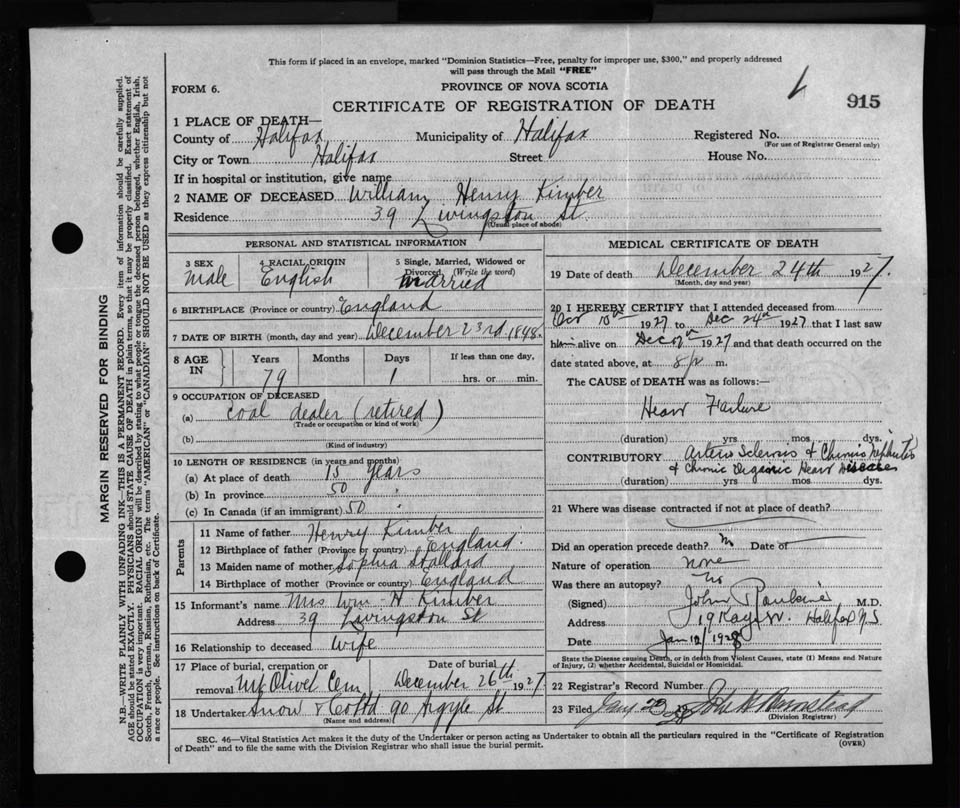 This form if placed in an envelope, marked "Dominion Statistics—Free, penalty for improper use, $300," and properly addressed
will pass through the Mail "FREE"
FORM 6.
PROVINCE OF NOVA SCOTIA
CERTIFICATE OF REGISTRATION OF DEATH
915
1 PLACE OF DEATH—
County of Halifax Municipality of Halifax Registered No.
(For use of Registrar General only)
City or Town Halifax Street House No.
If in hospital or institution, give name
2 NAME OF DECEASED William Henry Kimber
Residence 39 Livingston St
(Usual place of abode)
PERSONAL AND STATISTICAL INFORMATION
3 SEX Male
4 RACIAL ORIGIN English
5 Single, Married, Widowed or Divorced (Write the word) Married
6 BIRTHPLACE (Province or country) England
7 DATE OF BIRTH (month, day and year) December 23rd 1848
8 AGE IN Years 79 Months Days 1 If less than one day, hrs. or min.
9 OCCUPATION OF DECEASED
(a) coal dealer (retired)
(Trade or occupation or kind of work)
(b)
(Kind of industry)
10 LENGTH OF RESIDENCE (in years and months)
(a) At place of death 15 years
(b) In province 50 "
(c) In Canada (if an immigrant) 50 "
Parents
11 Name of father Henry Kimber
12 Birthplace of father (Province or country) England
13 Maiden name of mother Sophia Stallard
14 Birthplace of mother (Province or country) England
15 Informant's name Mrs Wm H Kimber
Address 39 Livingston St
16 Relationship to deceased wife
17 Place of burial, cremation or removal Mt Olivet Cem
Date of burial December 26th 1927
18 Undertaker Snow & Co Ltd 90 Argyle St
(Name and address)
MEDICAL CERTIFICATE OF DEATH
19 Date of death December 24th 1927.
(Month, day and year)
20 I HEREBY CERTIFY that I attended deceased from
Oct 1927 to Dec 24th 1927 that I last saw
him alive on Dec 1927 and that death occurred on the
date stated above, at 8 p m.
The CAUSE of DEATH was as follows:—
Heart Failure
(duration) yrs. mos. dys.
CONTRIBUTORY Arterio Sclerosis & Chronic Nephritis
& Chronic Organic Heart Diseases
(duration) yrs. mos. dys.
21 Where was disease contracted if not at place of death?
Did an operation precede death? no Date of
Nature of operation none
Was there an autopsy? no
(Signed) John Rankine M.D.
Address Halifax N.S.
Date Jan 1928
State the Disease causing Death, or in death from Violent Causes, state (1) Means and Nature
of Injury, (2) whether Accidental, Suicidal or Homicidal.
22 Registrar's Record Number
23 Filed Jany 23 John
(Division Registrar)
SEC. 46—Vital Statistics Act makes it the duty of the Undertaker or person acting as Undertaker to obtain all the particulars required in the "Certificate of Registration
of Death" and to file the same with the Division Registrar who shall issue the burial permit.
(OVER)
MARGIN RESERVED FOR BINDING
N.B.—WRITE PLAINLY WITH UNFADING INK—THIS IS A PERMANENT RECORD. Every item of information should be carefully supplied.
AGE should be stated EXACTLY. PHYSICIANS should STATE CAUSE OF DEATH in plain terms, so that it may be properly classified. Exact statement of
OCCUPATION is very important. RACIAL ORIGIN will be described by stating to what people or tongue the deceased person belonged, whether English, Irish,
Scotch, French, German, Russian, Ruthenian, etc. The terms "AMERICAN" or "CANADIAN" SHOULD NOT BE USED as they express citizenship but not
a race or people. See instructions on back of Certificate.